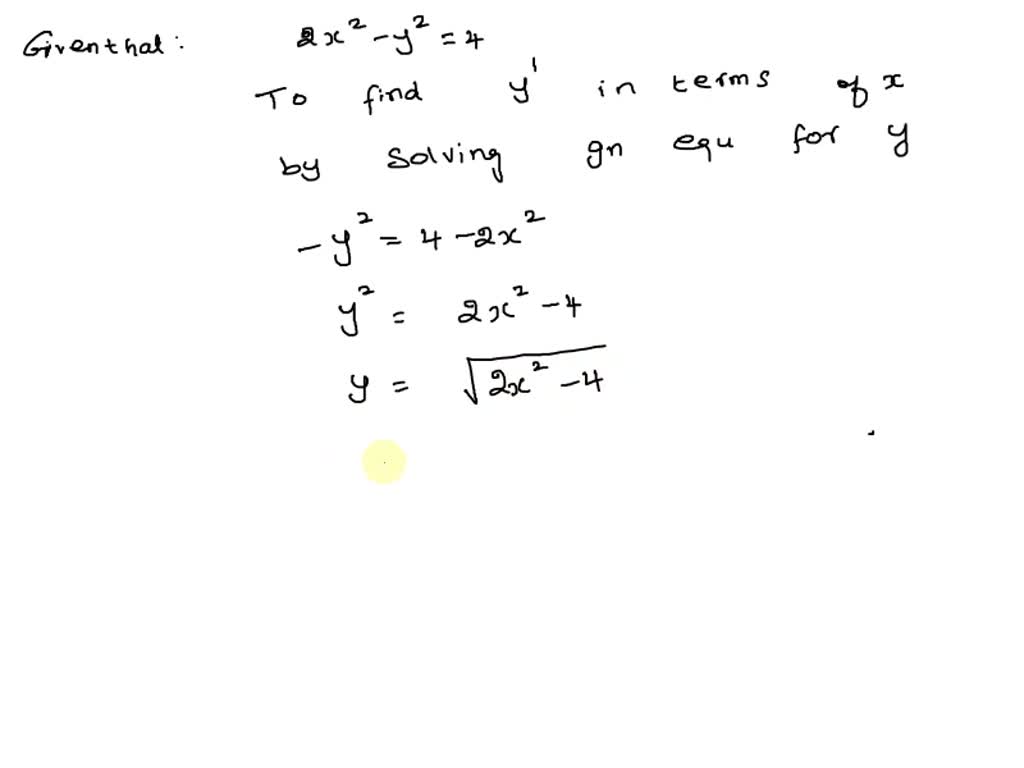 Given that: 2x² - y² = 4
To find y' in terms of x
by solving gn equ for y
-y² = 4 - 2x²
y² = 2x² - 4
y = √(2x² - 4)